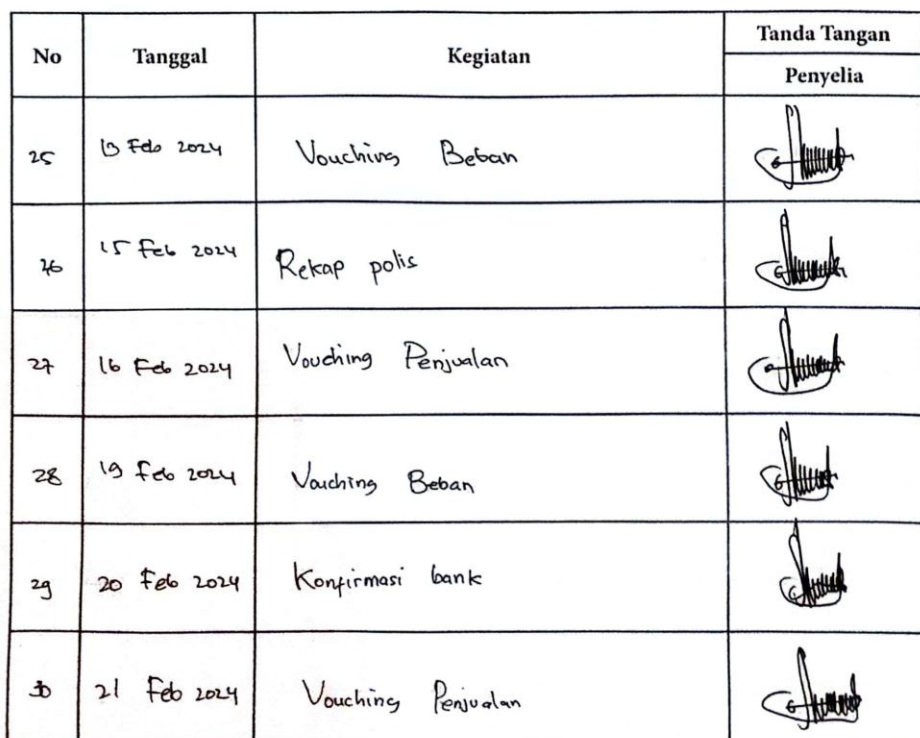 No Tanggal Kegiatan Tanda Tangan
Penyelia
25 13 Feb 2024 Vouching Beban
26 15 Feb 2024 Rekap polis
27 16 Feb 2024 Vouching Penjualan
28 19 Feb 2024 Vouching Beban
29 20 Feb 2024 Konfirmasi bank
30 21 Feb 2024 Vouching Penjualan